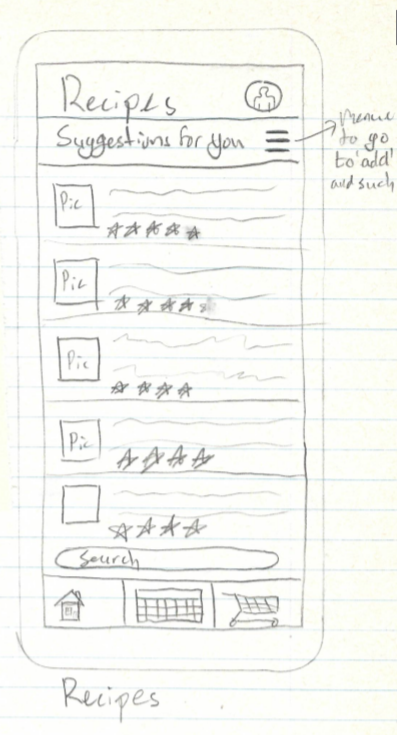 Recipes
Suggestions for you
Menue
to go
to 'add'
and such
Pic
Pic
Pic
Pic
Search
Recipes